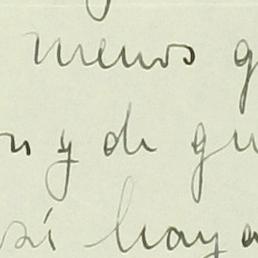 menos q
n y de qu
sí haya